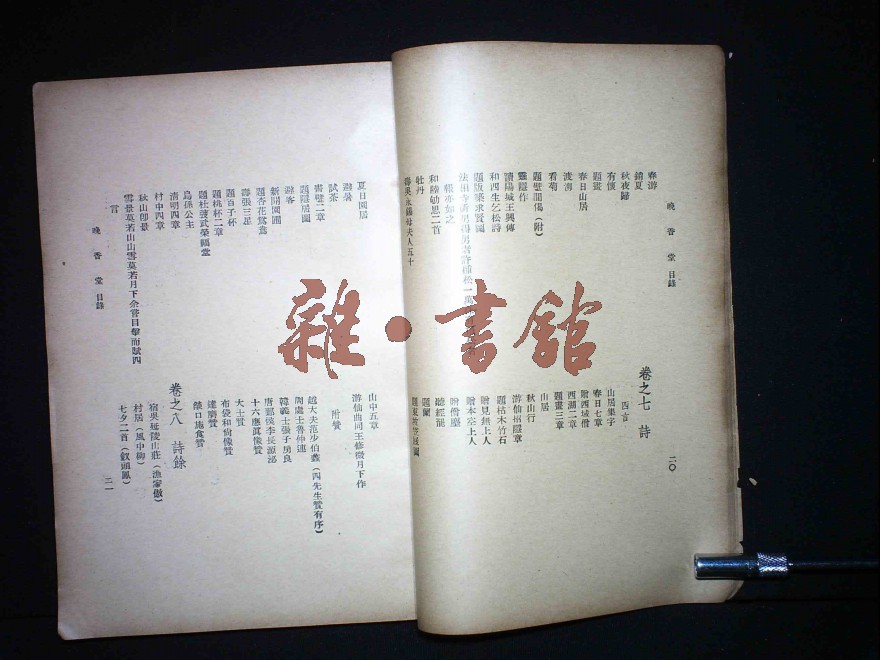 晚香堂目錄
二〇
春游
銷夏
秋夜歸
有懷
題畫
春日山居
泛泖
看菊
題壁間偈（附）
靈隱作
讀陽城王興傳
和四生乞松詩
報亦如之
和陸幼思二首
牡丹
卷之七 詩
四言
山居集字
春日七章
贈西域僧
西湖二章
題畫三章
山居
秋山行
游仙州隱章
題枯木竹石
贈見無上人
贈本空上人
贈僧塵
聽經雞
題蘭
夏日園居
避暑
試茶
書壁二章
題隱居圖
避客
新開園圃
題杏花鴛鴦
壽張三至
題百子杯
題桃杯二章
題社鼓武榮福堂
烏孫公主
清明四章
村中四章
秋山即景
雪景莫若山山雪莫若月下余嘗目擊而賦四
言
山中五章
游仙曲同王修微月下作
附贊
越大夫范少伯蠡（四先生贊有序）
周處士魯仲連
韓義士張子房良
唐鄴侯李長源泌
十六應眞像贊
大士贊
布袋和尙像贊
達磨贊
燄口施食贊
卷之八 詩餘
宿吳延陵山莊（漁家傲）
村居（風中柳）
七夕二首（釵頭鳳）
晚香堂目錄
二一
雜·書館